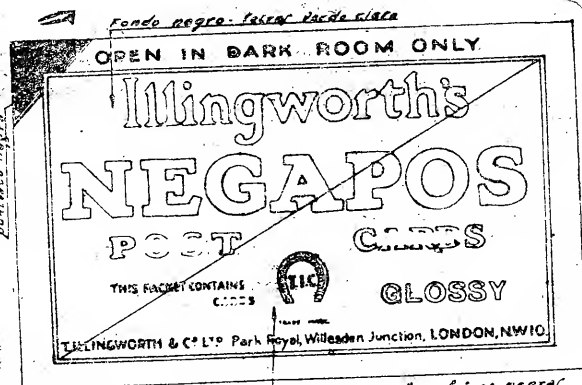 Fondo negro - letras verde claro
OPEN IN DARK ROOM ONLY
Illingworth's
NEGAPOS
POST CARDS
THIS PACKET CONTAINS
CARDS
T.I.C
TRADE MARK
GLOSSY
T. ILLINGWORTH & Cº LTD Park Royal, Willesden Junction, LONDON, N.W.10.